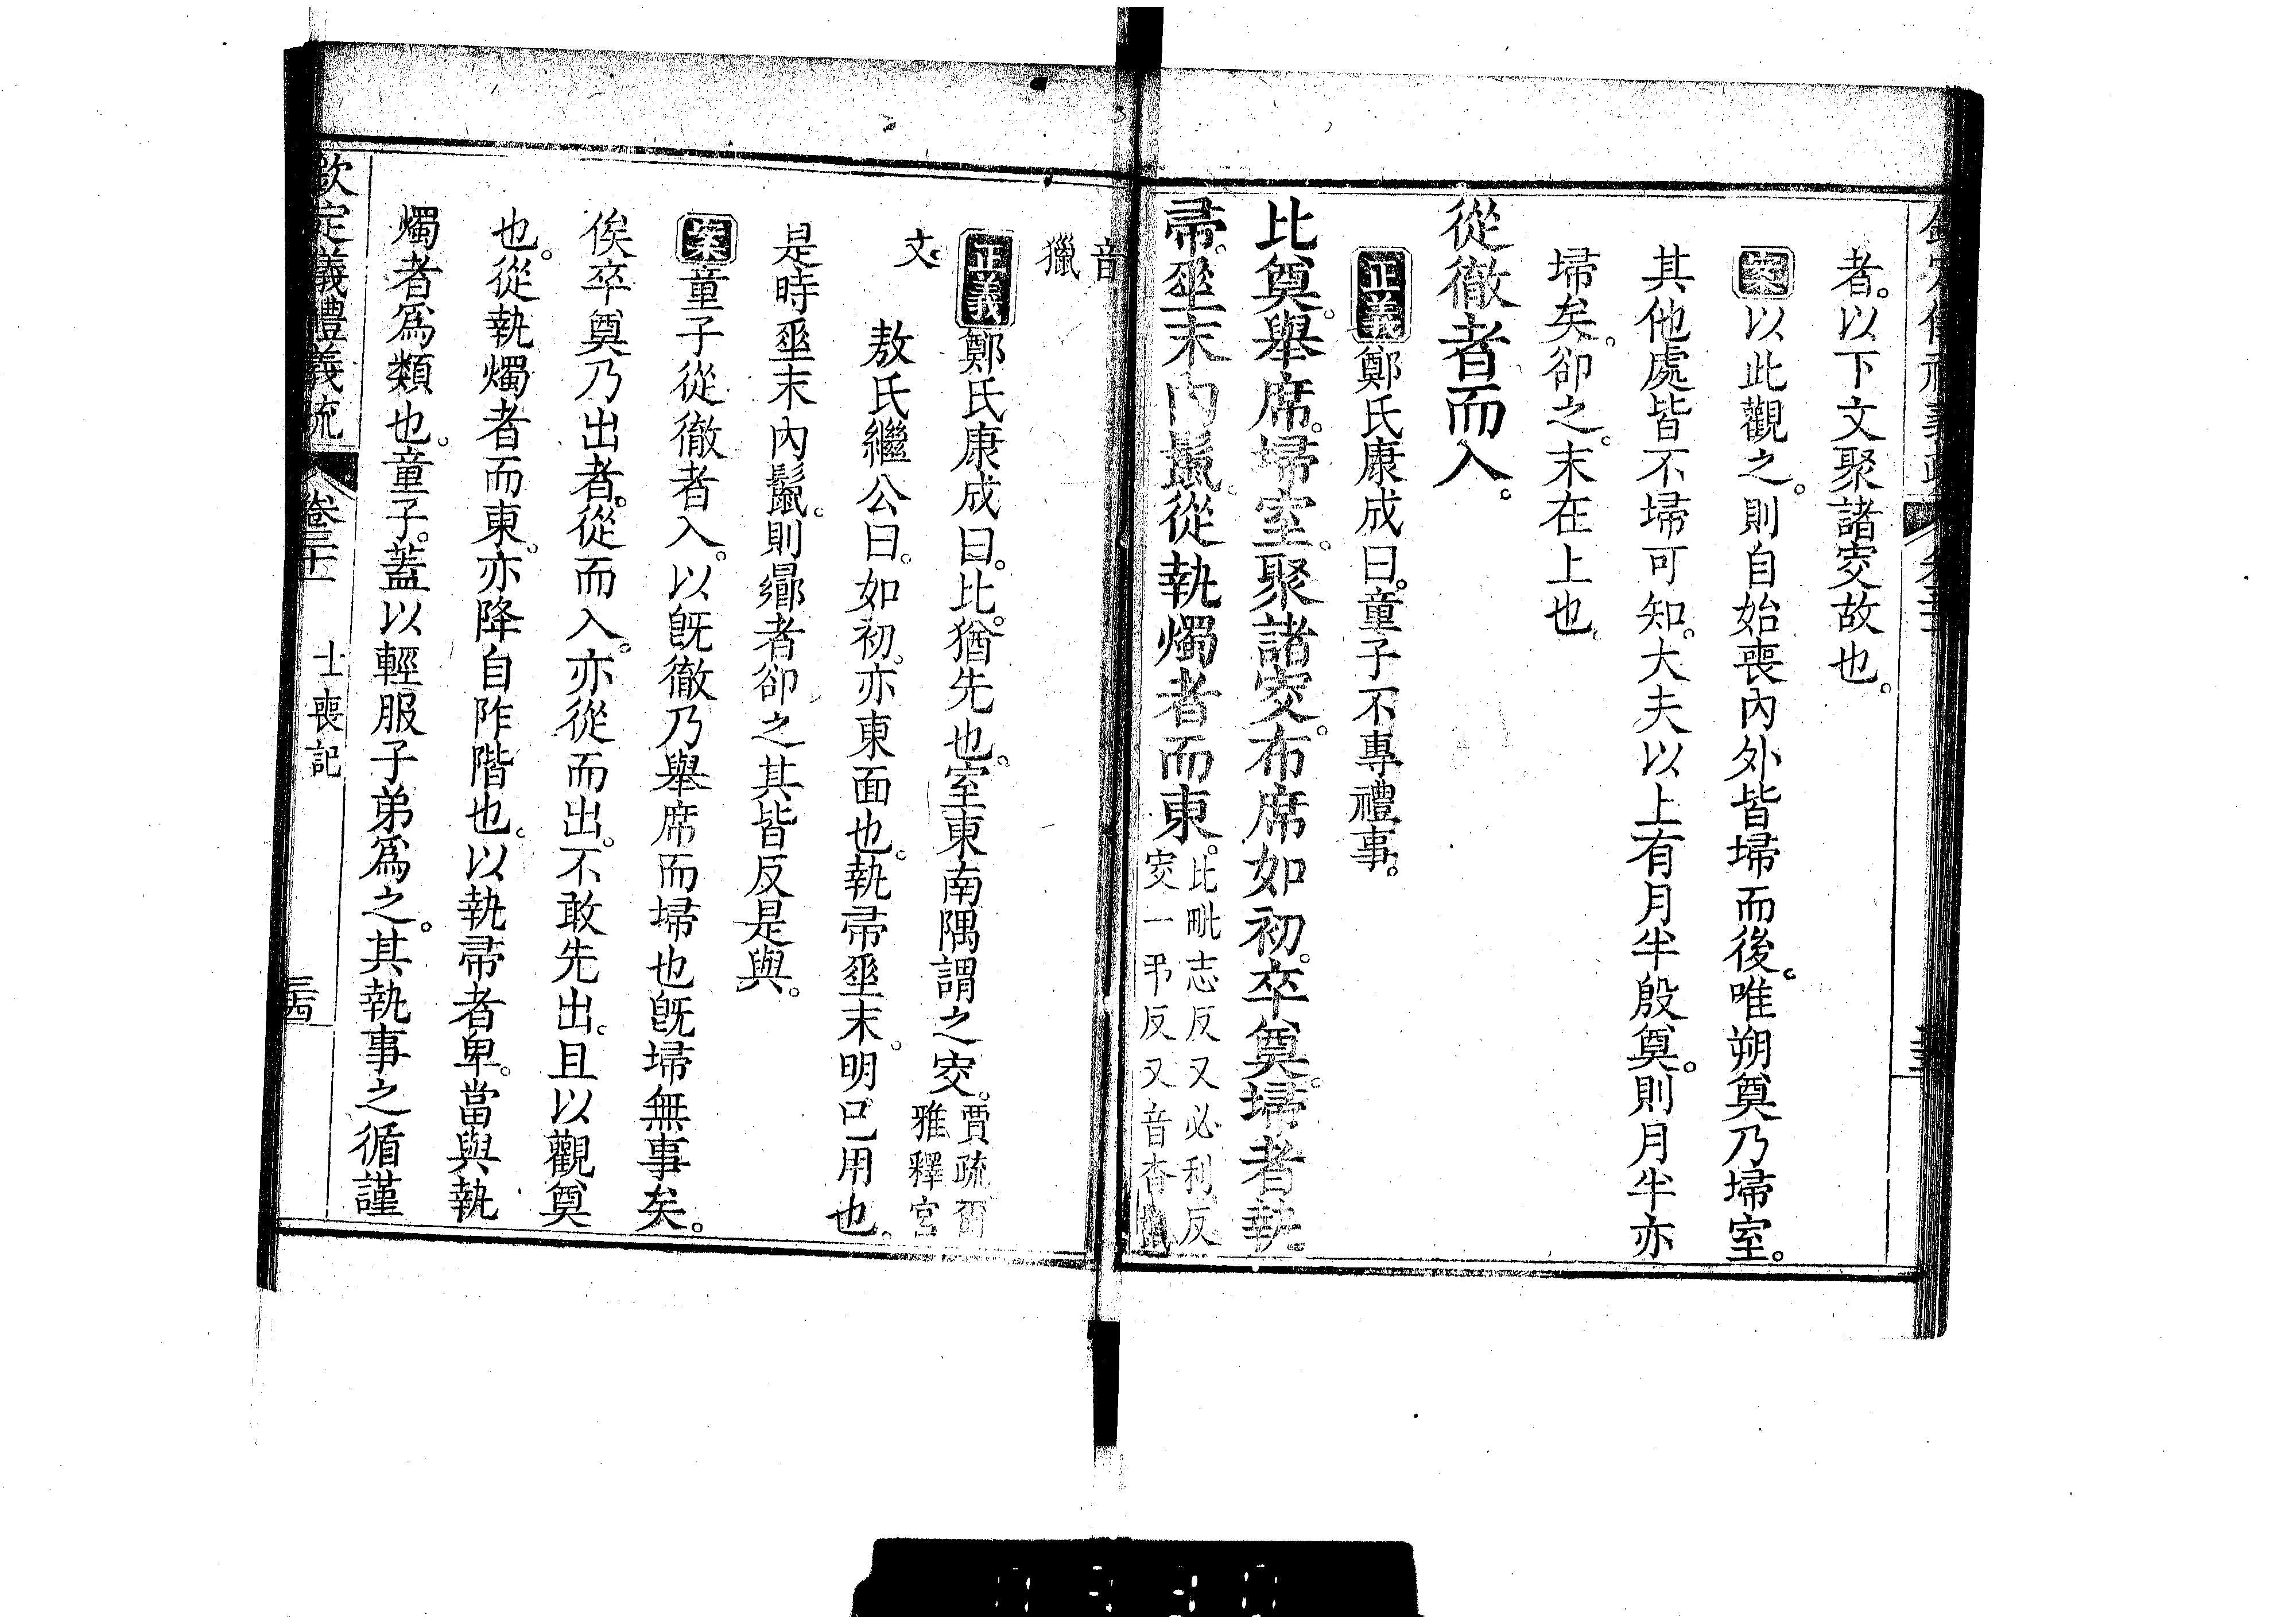 者。以下文聚諸窔故也。
案以此觀之。則自始喪內外皆埽而後。唯朔奠乃埽室。
其他處皆不埽可知。大夫以上有月半殷奠。則月半亦
埽矣。卻之。末在上也。
從徹者而入。
正義鄭氏康成曰。童子不專禮事。
比奠。舉席。埽室。聚諸窔。布席如初。卒奠。埽者執
帚。垂末內鬛。從執燭者而東。比毗志反又必利反
窔一弔反又音杳鬛
音
獵
正義鄭氏康成曰。比。猶先也。室東南隅謂之窔。賈疏爾
雅釋宮
文。
敖氏繼公曰。如初。亦東面也。執帚垂末。明已用也。
是時垂末內鬛。則曏者卻之其皆反是與。
案童子從徹者入。以旣徹乃舉席而埽也旣埽無事矣。
俟卒奠乃出者。從而入。亦從而出。不敢先出。且以觀奠
也。從執燭者而東。亦降自阼階也。以執帚者卑。當與執
燭者爲類也。童子。蓋以輕服子弟爲之。其執事之循謹
欽定儀禮義疏
卷三十一
士喪記
三四